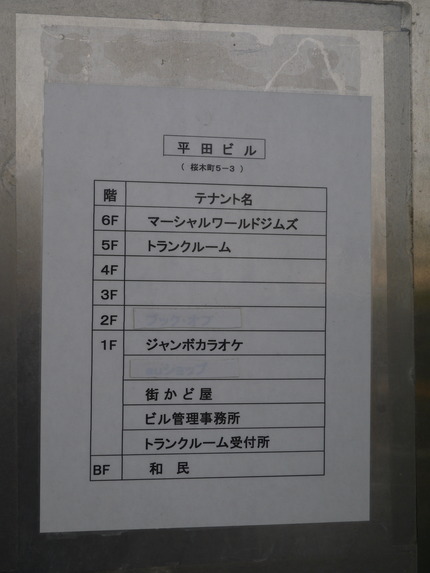 平田ビル
(桜木町5-3)
階 テナント名
6F マーシャルワールドジムズ
5F トランクルーム
4F
3F
2F ブック・オフ
1F ジャンボカラオケ
auショップ
街かど屋
ビル管理事務所
トランクルーム受付所
BF 和民